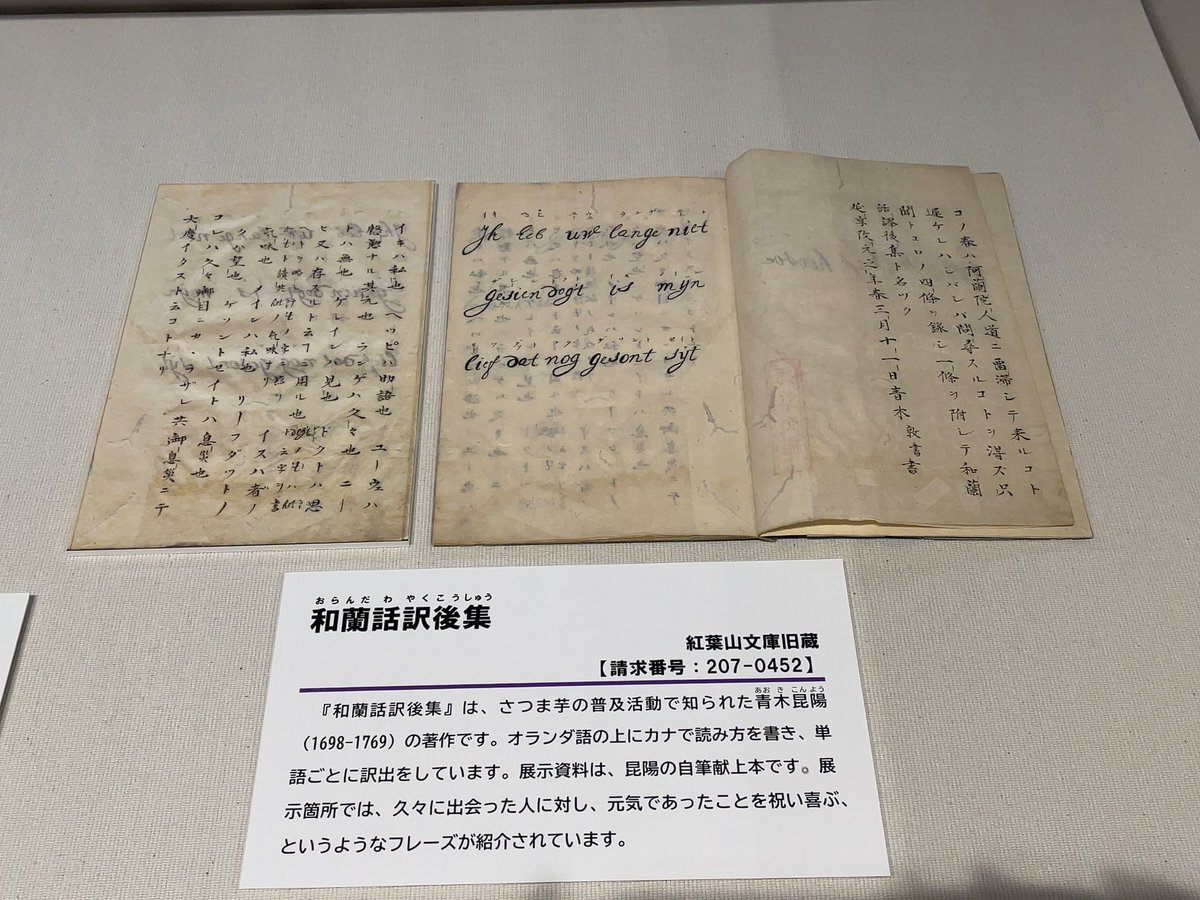 コノ春ハ阿蘭陀人道ニ留滞シテ来ルコト
遲ケレハシバシバ問尋スルコトヲ得ズ只
聞トコロノ四條ヲ録シ一條ヲ附シテ和蘭
話譯後集ト名ツク
延享改元之年春三月十一日青木敦書書
Jk heb uwe lange niet
gesien dogt is mijn
lief dat nog gesont sijt
イキハ私也 ヘッピハ助語也 ユーウェハ
慇懃ナル其元也 ランゲハ久々也 ニー
トハ無也 ゲシインハ見也 ドクトハ思
ヒ又ハ存スルト云フニ用ル也
イスハ者ノ
気味也 メインハ私也 リーフダットノ
クハ望也 ゲソントセイトハ息災也
コレハ久々御目ニカヽラザレ共御息災ニテ
大慶イタスト云コトナリ
おらんだわやくこうしゅう
和蘭話訳後集
紅葉山文庫旧蔵
【請求番号：207-0452】
あおきこんよう
『和蘭話訳後集』は、さつま芋の普及活動で知られた青木昆陽
（1698-1769）の著作です。オランダ語の上にカナで読み方を書き、単
語ごとに訳出をしています。展示資料は、昆陽の自筆献上本です。展
示箇所では、久々に出会った人に対し、元気であったことを祝い喜ぶ、
というようなフレーズが紹介されています。